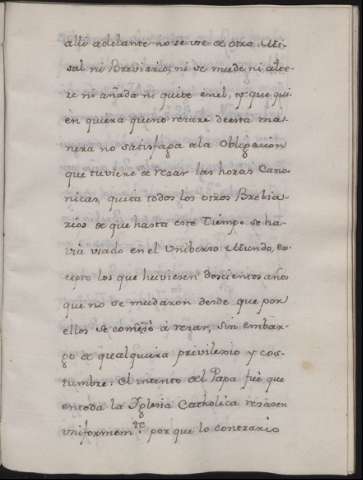 alli adelante no se use de otro Mi-
sal ni Breviario, ni se mude ni alte-
re ni añada ni quite en el, y que qui-
en quiera que no rezare de esta ma-
nera no satisfaga a la Obligacion
que tuviere de rezar las horas Cano-
nicas, quita todos los otros Brebia-
rios de que hasta este Tiempo se ha-
via usado en el Uniberso Mundo, ex-
cepto los que huviesen doscientos años
que no se mudaron desde que por
ellos se comenzó á rezar, sin embar-
go de qualquiera previlexio y cos-
tumbre: el intento del Papa fué que
en toda la Iglesia Catholica rezasen
uniformemte. por que lo contrario